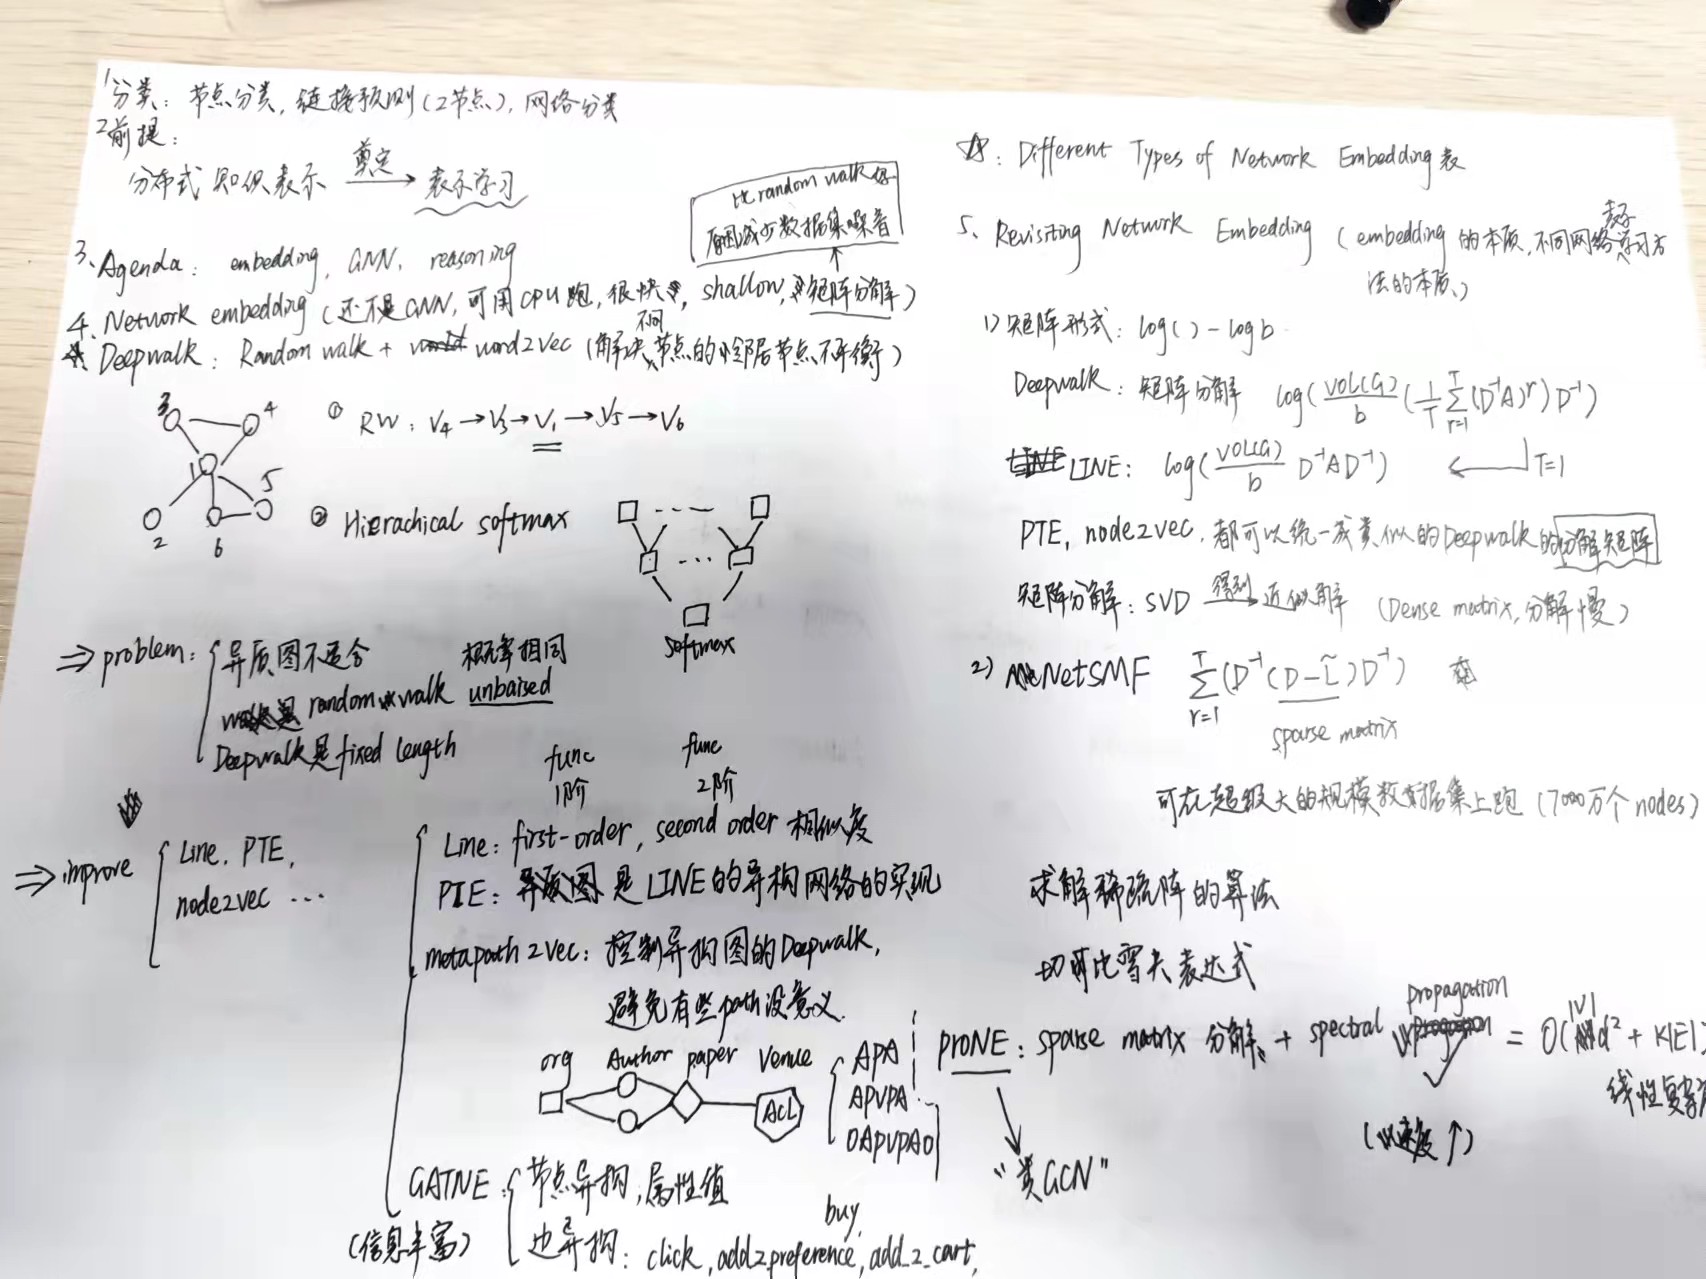 1 分类：节点分类，链接预测（2节点），网络分类
2 前提：
分布式知识表示 奠定→ 表示学习
比random walk好
原因减少数据集噪音
3、Agenda：embedding，GNN，reasoning
4、Network embedding（还不是GNN，可用CPU跑，很快，shallow，矩阵分解）
Deepwalk：Random walk + word2vec（解决不同节点的邻居节点不平衡）
3 4 1 5 2 6
① RW：V4→V3→V1→V5→V6
② Hierachical softmax
softmax
⇒ problem：异质图不适合
random walk 概率相同 unbaised
Deepwalk是fixed length
⇒ improve
Line，PTE，
node2vec …
func 1阶 func 2阶
Line：first-order，second order 相似度
PTE：是LINE的异构网络的实现
metapath2vec：控制异构图的Deepwalk，
避免有些path没意义.
org Author paper Venue
ACL
APA
APVPA
OAPVPAO
GATNE：节点异构，属性值
（信息丰富）
边异构：click，add2preference，add_2_cart，
buy
☆：Different Types of Network Embedding表
5、Revisiting Network Embedding（embedding的本质，不同网络表示学习方
法的本质）
1）矩阵形式：log( ) - log b
Deepwalk：矩阵分解 log(vol(G)/b (1/T Σ_{r=1}^{T} (D⁻¹A)^r) D⁻¹)
LINE：log(vol(G)/b D⁻¹AD⁻¹) ← T=1
PTE，node2vec，都可以统一成类似的Deepwalk的分解矩阵
矩阵分解：SVD 得到→ 近似解（Dense matrix，分解慢）
2）NetSMF Σ_{r=1}^{T} (D⁻¹(D-L̃)D⁻¹)
sparse matrix
可在超级大的规模数据集上跑（7000万个nodes）
求解稀疏阵的算法
切可比雪夫表达式
proNE：sparse matrix 分解 + spectral propagation = O(|V|d² + K|E|)
线性复杂
（速度↑）
“类GCN”